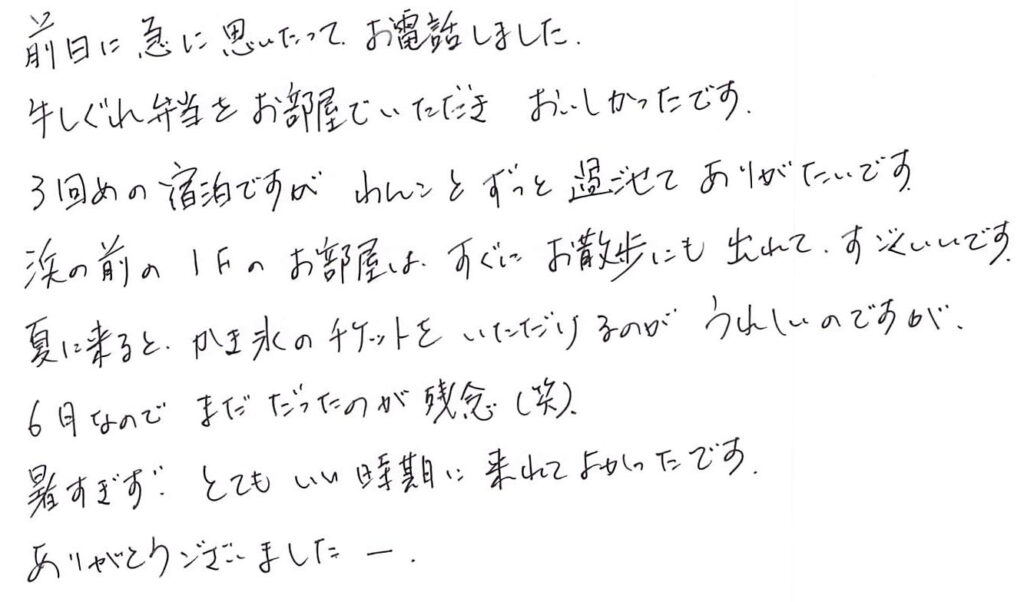 前日に急に思いたって、お電話しました.
牛しぐれ弁当をお部屋でいただき おいしかったです.
3回めの宿泊ですが わんことずっと過ごせてありがたいです
浜の前の1Fのお部屋は、すぐにお散歩にも出れて、すごくいいです.
夏に来ると、かき氷のチケットをいただけるのがうれしいのですが、
6月なのでまだだったのが残念(笑).
暑すぎず、とてもいい時期に来れてよかったです.
ありがとうございましたー.